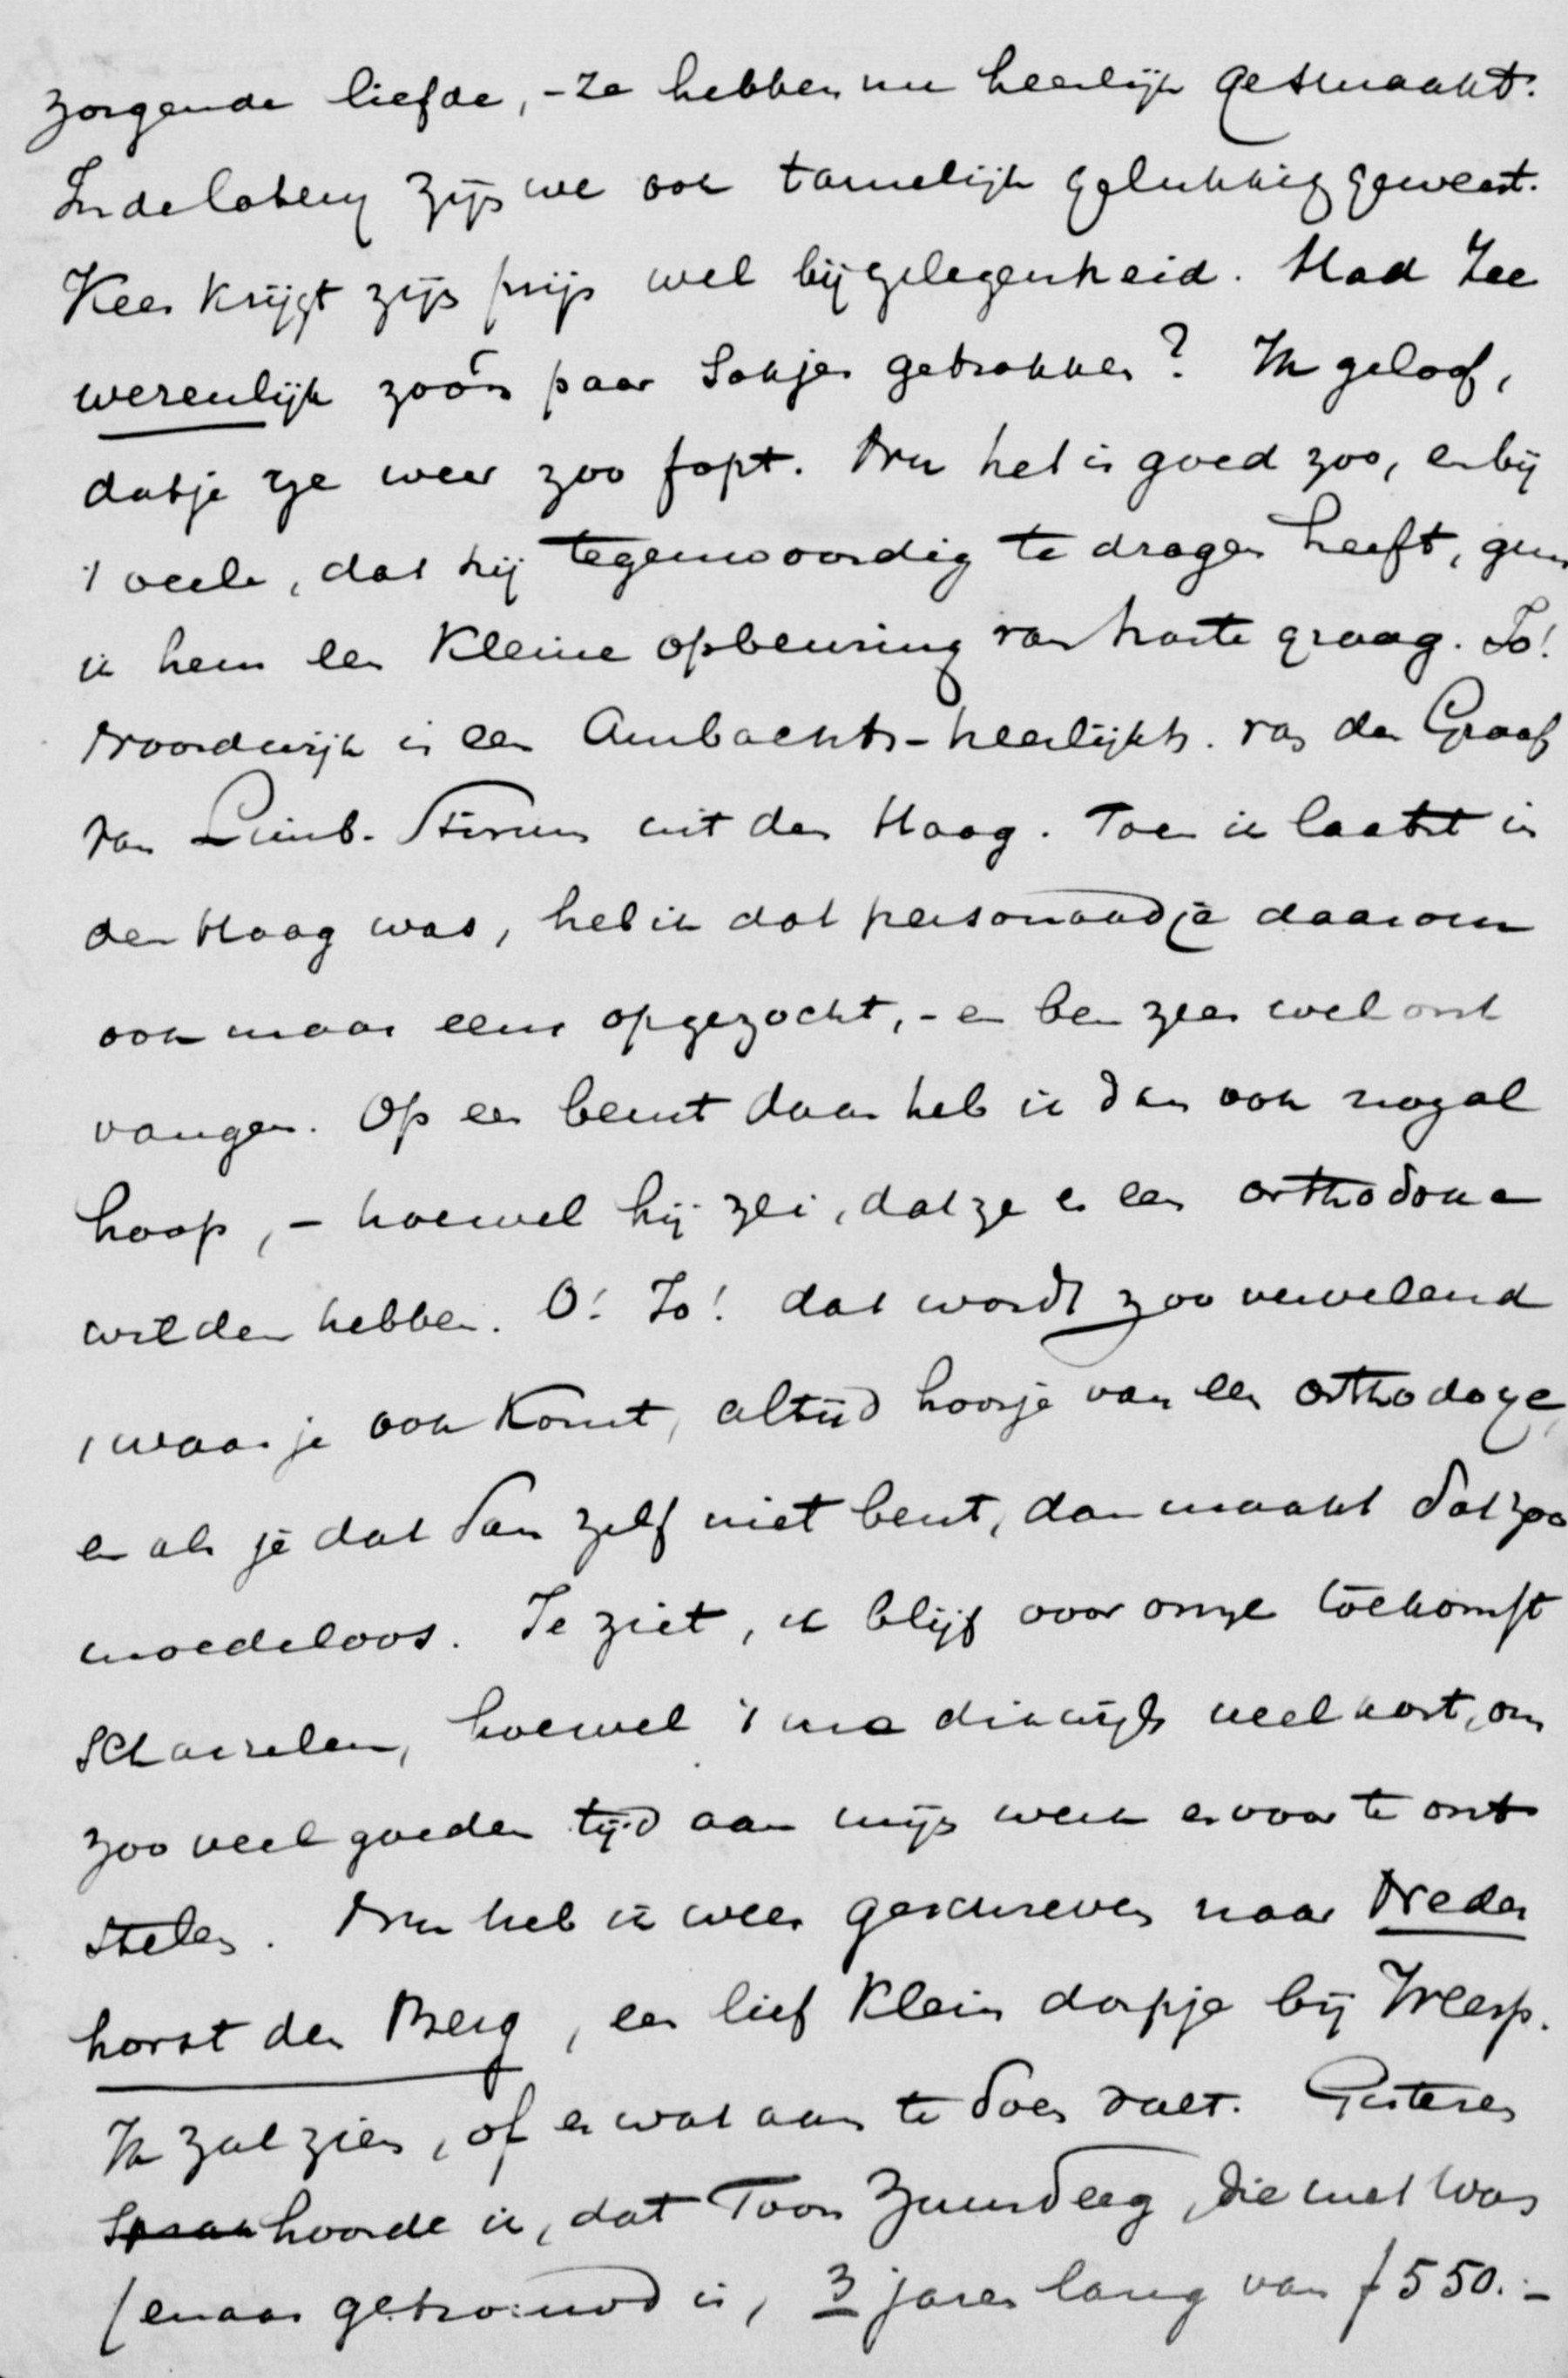 zorgende liefde, - ze hebben me heerlijk gesmaakt.
In de loterij zijn we ook tamelijk gelukkig geweest.
Kees krijgt zijn prijs wel bij gelegenheid. Had Zee
werenlijk zóó'n paar sokjes getrokken? Ik geloof,
dat je ze weer zoo fopt. Nu het is goed zoo, en bij
't veele, dat hij tegenwoordig te dragen heeft, gun
ik hem een kleine opbeuring van harte graag. Jo!
Noordwijk is een Ambachts-heerlijkh. van den Graaf
van Limb. Stirum uit den Haag. Toen ik laatst in
den Haag was, heb ik dat personaadje daarom
ook maar eens opgezocht, - en ben zeer wel ont
vangen. Op een beurt daar heb ik dan ook nogal
hoop, - hoewel hij zei, dat ze er een orthodoxe
wilden hebben. O! Jo! dat wordt zoo vervelend
, waar je ook komt, altijd hoor je van een orthodoxe,
en als je dat dan zelf niet bent, dan maakt dat zoo
moedeloos. Je ziet, ik blijf voor onze toekomst
scharrelen, hoewel 't me dikwijls veel kost, om
zoo veel goeden tijd aan mijn werk ervoor te ont
stelen. Nu heb ik weer geschreven naar Neder
horst den Berg, een lief klein dorpje bij Weesp.
Ik zal zien, of er wat aan te doen valt. Gisteren
sprak hoorde ik, dat Toon Zuurdeeg, die met Was
/enaar getrouwd is, 3 jaren lang van f 550.-